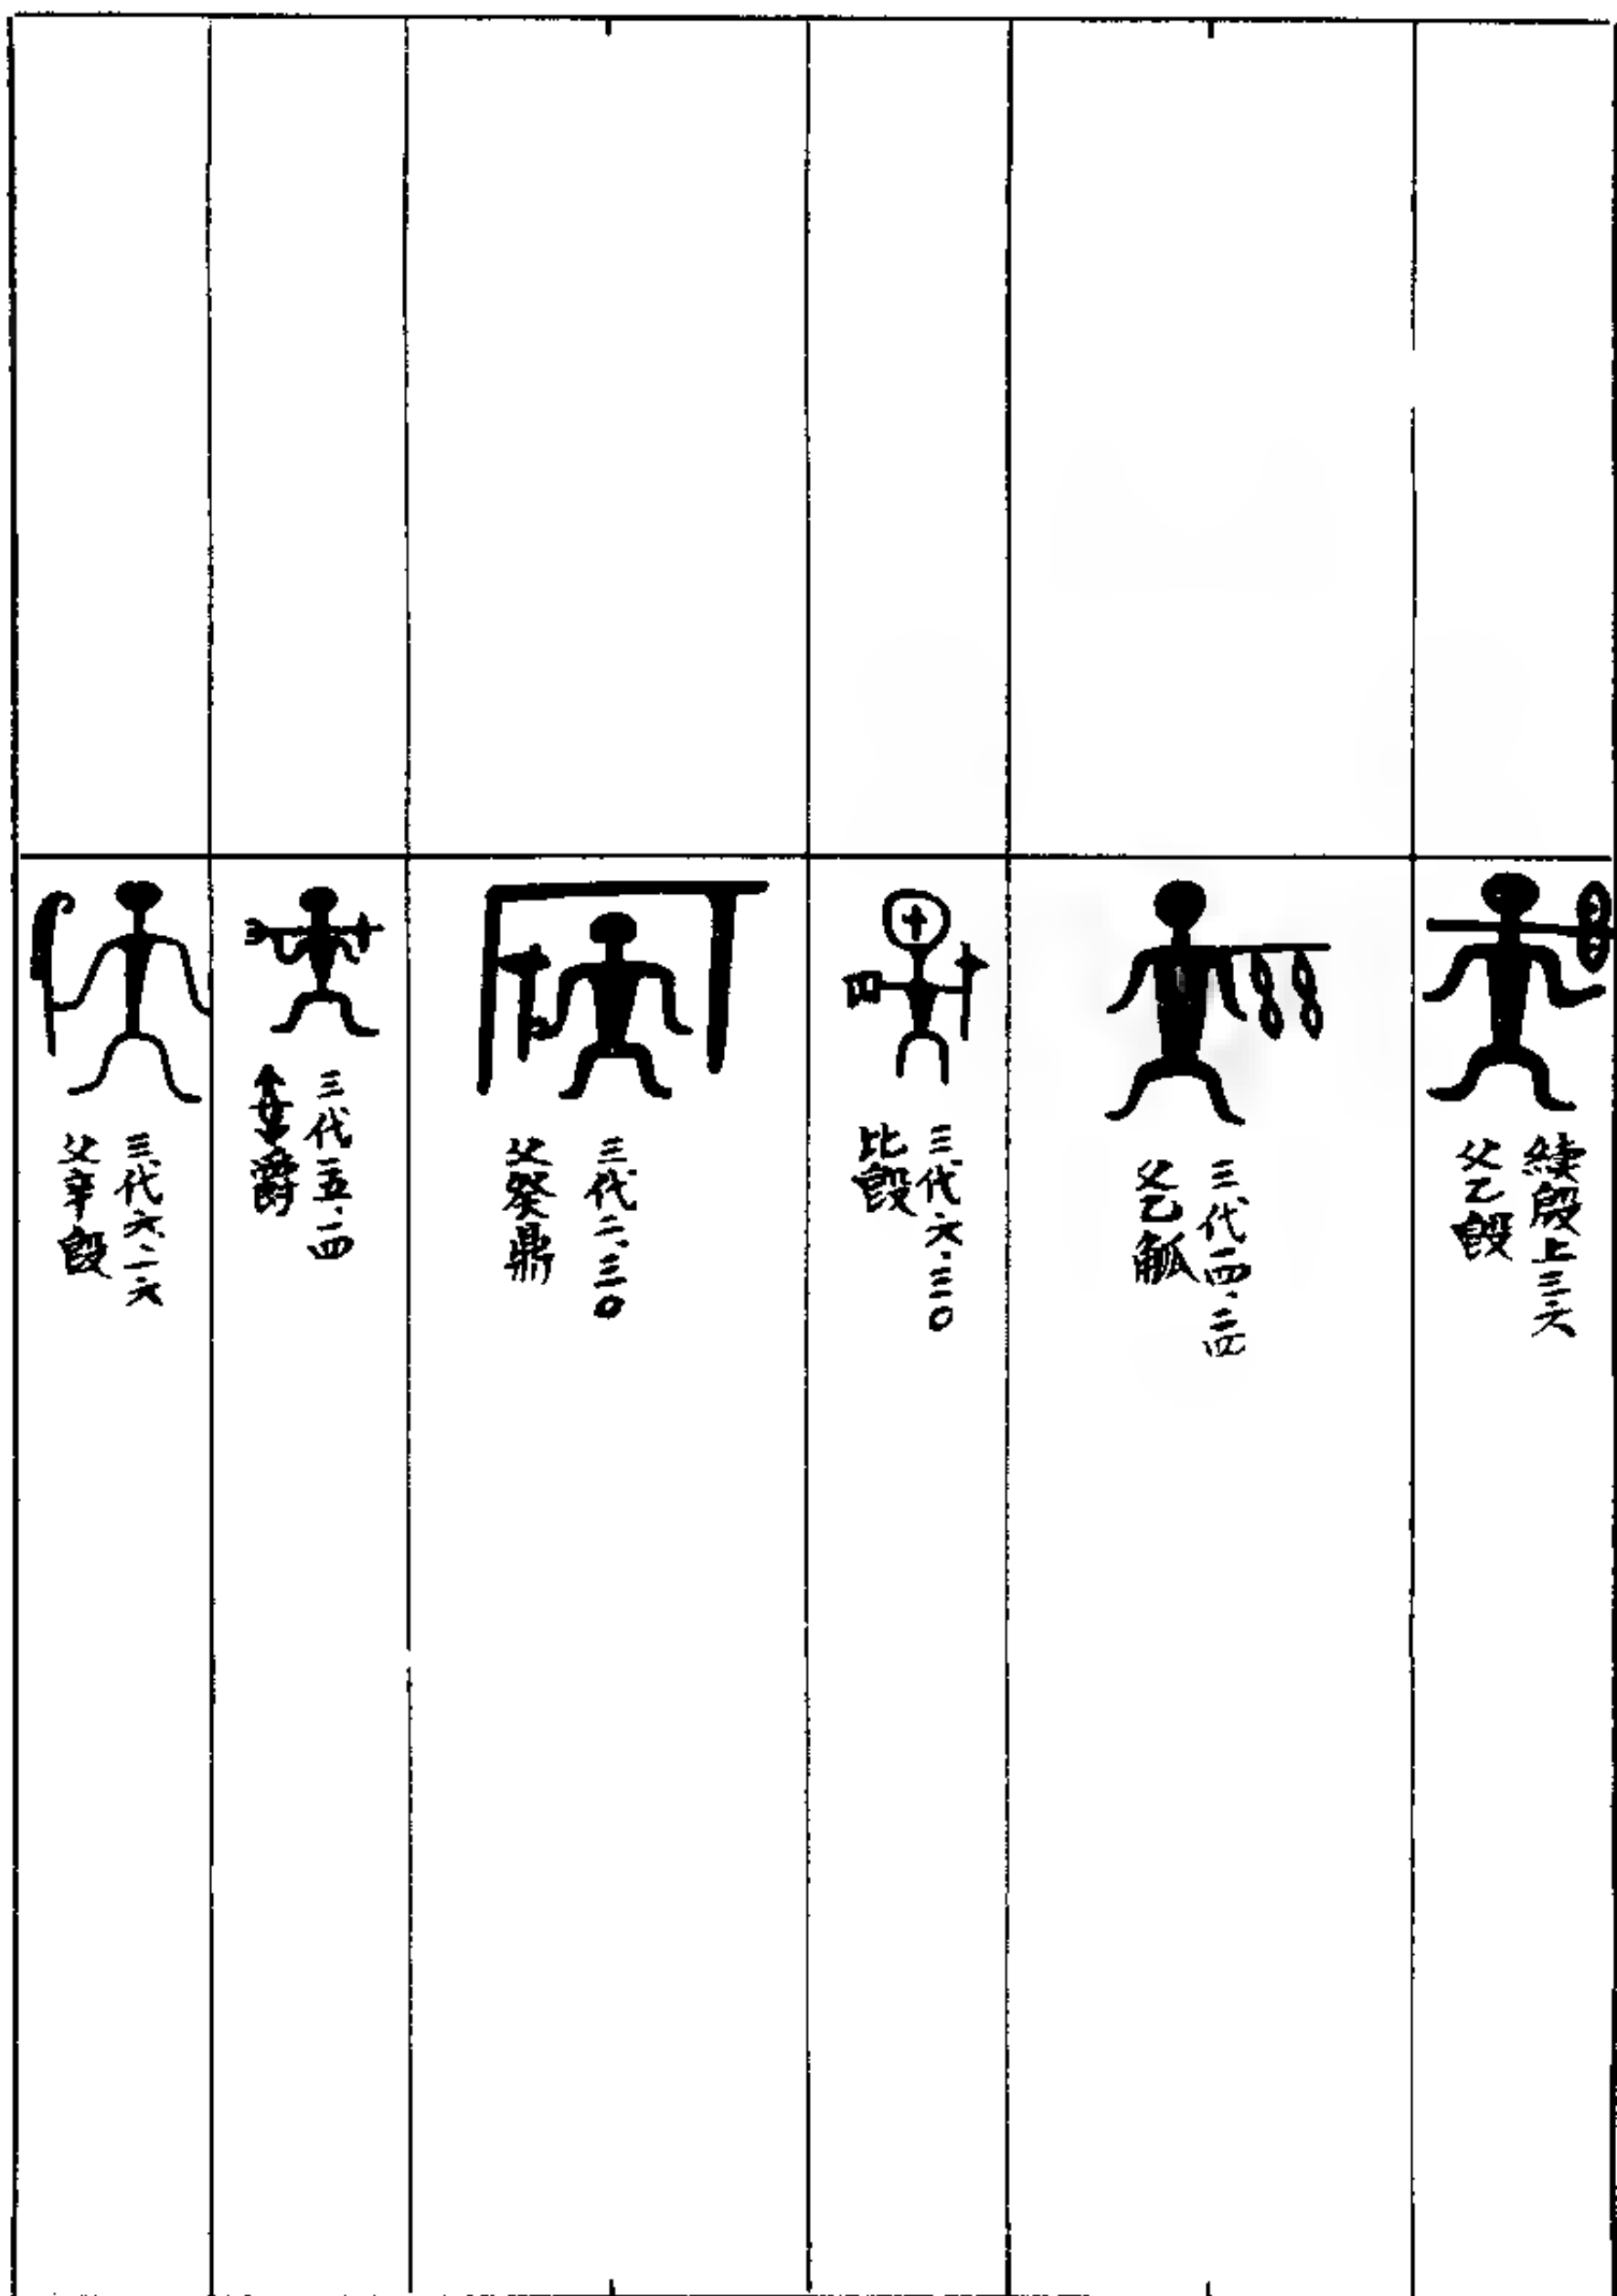 續殷上三六
父乙𣪘
三代一四·二四
父乙觚
三代六·三〇
比𣪘
三代二·三〇
父癸鼎
三代一五·四
爵
三代六·二六
父辛𣪘